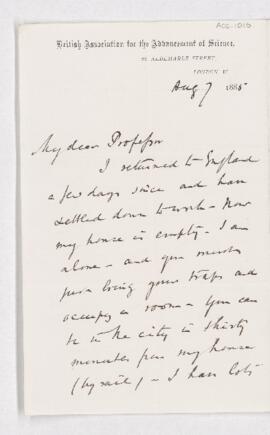 ACC-1016
British Association for the Advancement of Science.
22 ALBEMARLE STREET,
LONDON W.
Aug 7 1885
My dear Professor
I returned to England
a few days since and have
settled down to work - Now
my house is empty - I am
alone - and you must
just bring your traps and
occupy a room - You can
be in the city in thirty
minutes from my house
(by rail) - I have lots